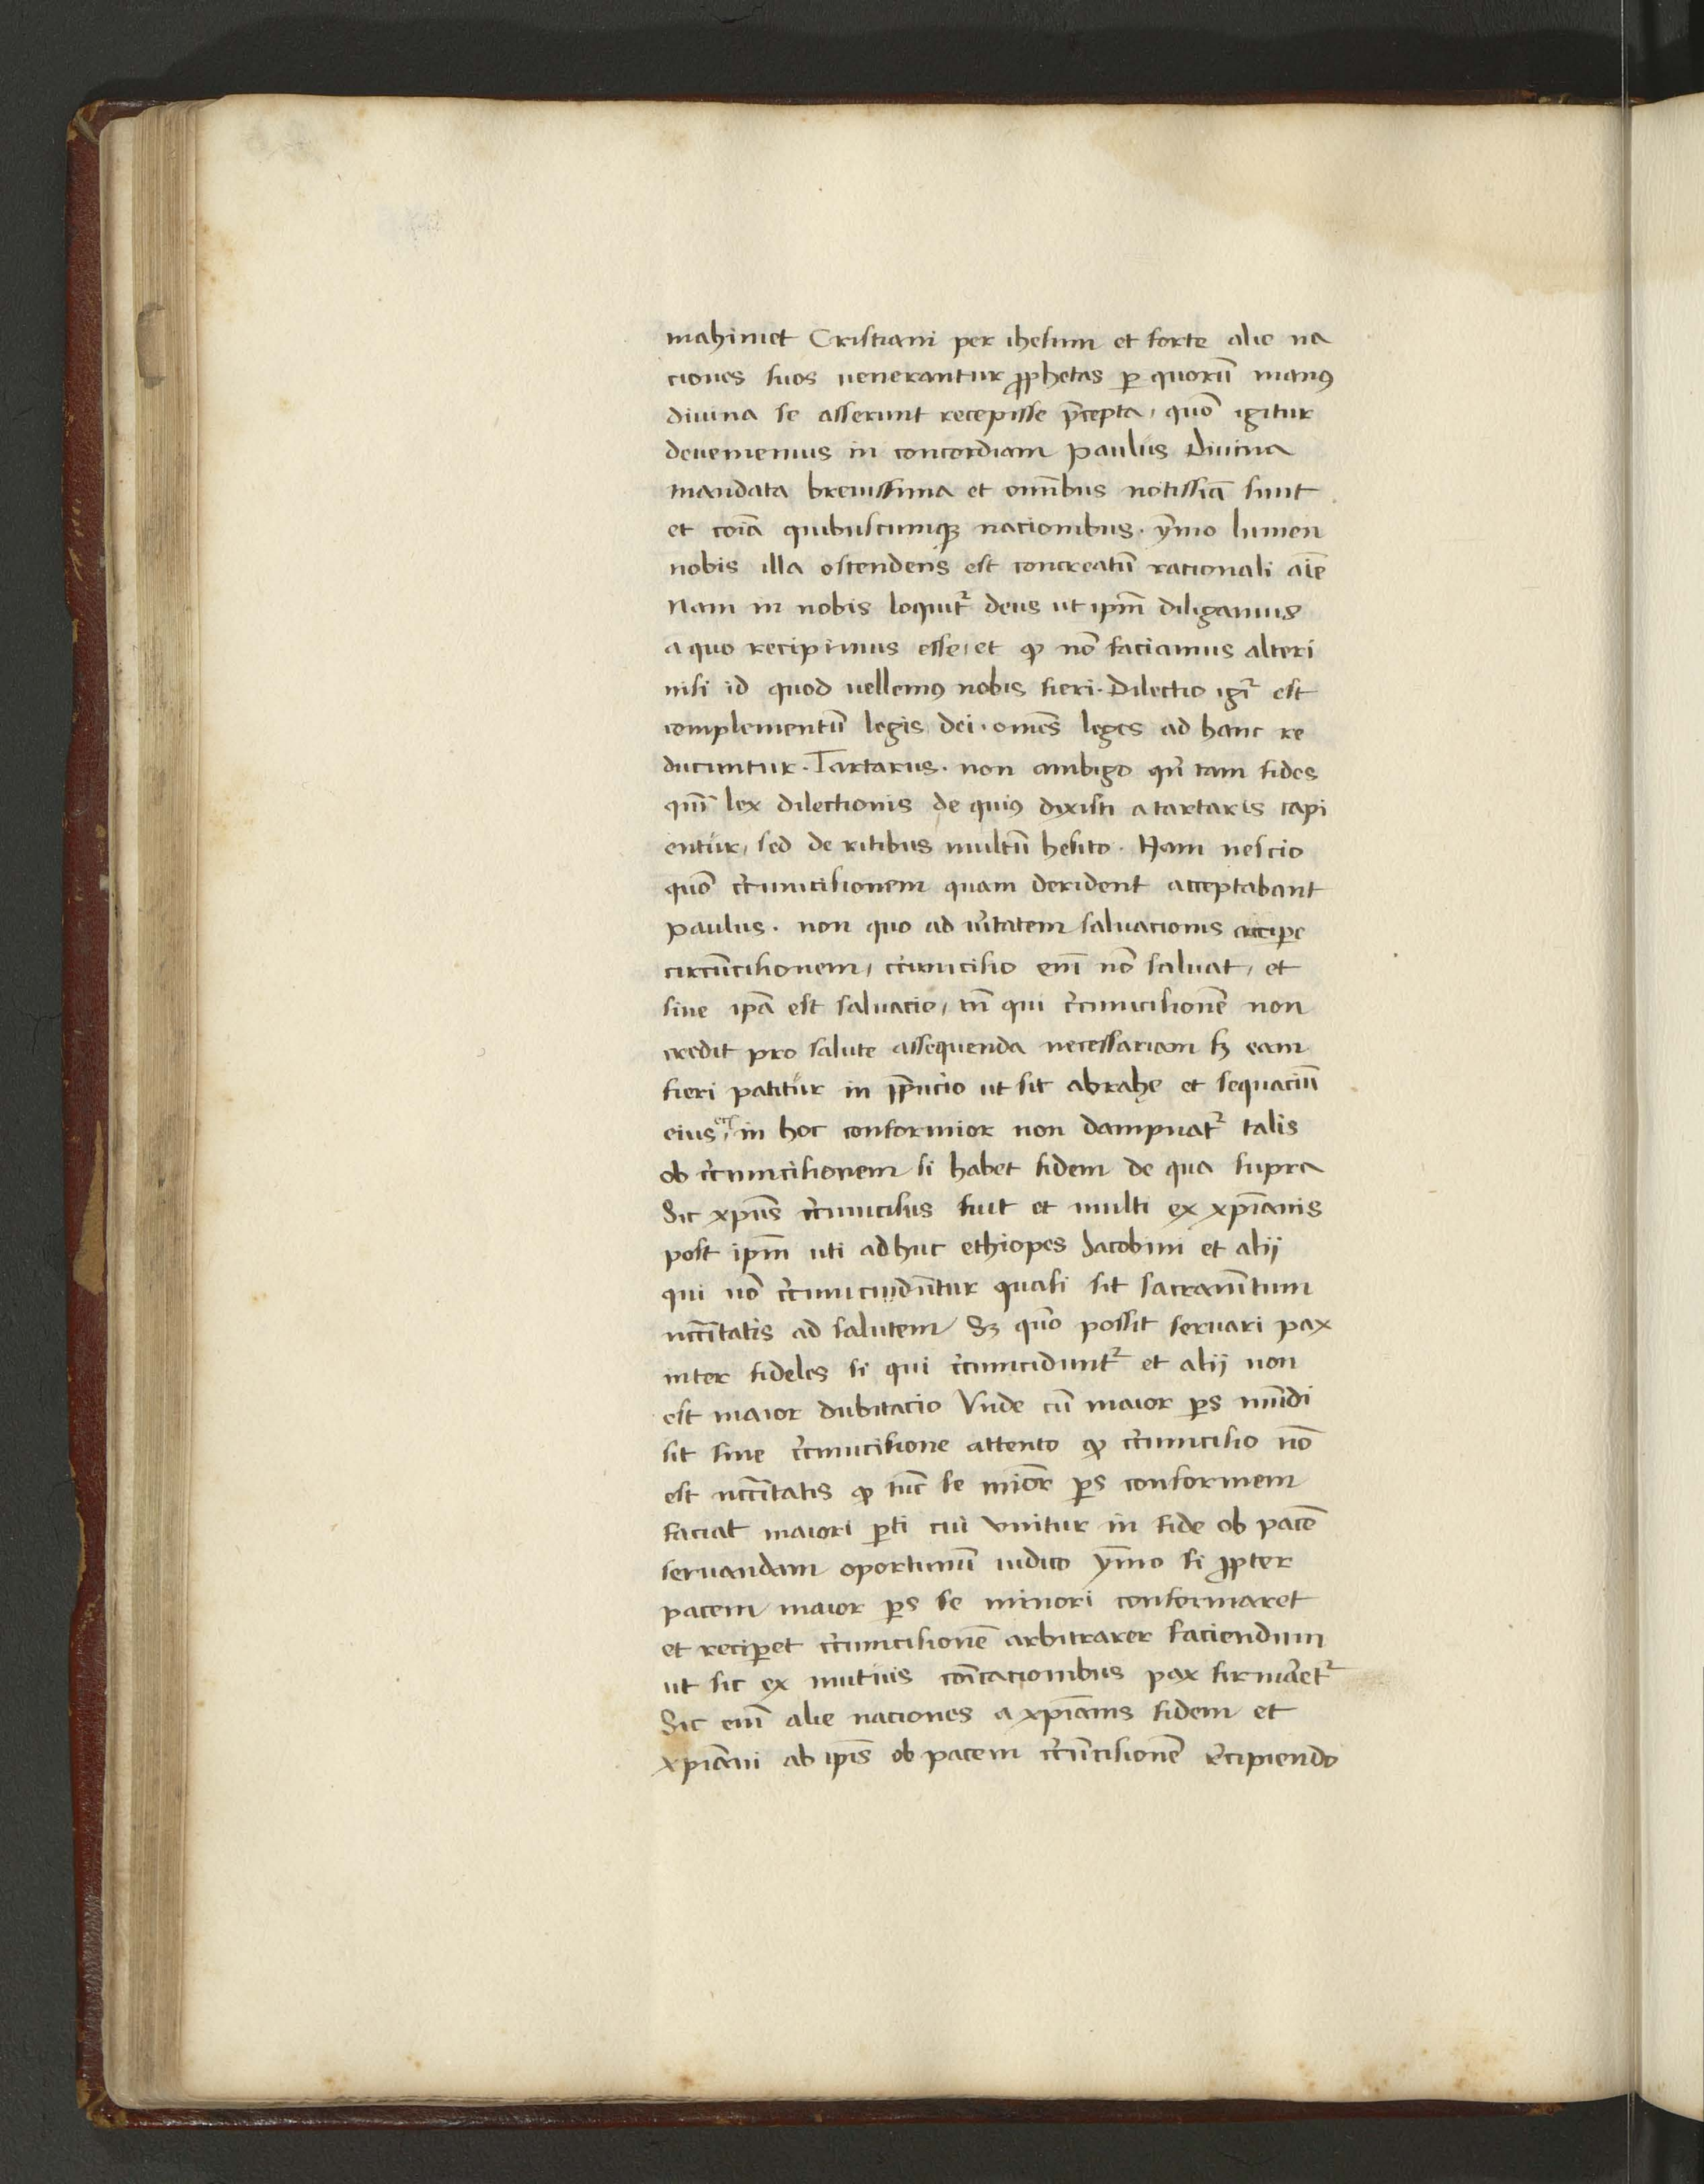 mahimet Cristiani per ihesum et forte alie na
ciones suos uenerantur ꝓphetas ꝑ quorū manꝰ
diuina se asserunt recepisse p̄cepta, quō igitur
deuemenius in concordiam Paulus Diuina
mandata breuissima et om̄ibus notissīa sunt
et cōia quibuscumqꝫ nacionibus. ẏmo lumen
nobis illa ostendens est concreatū racionali aīe
Nam in nobis loquit᷑ deus ut ip̄m diligamus
a quo recipimus esse, et ꝙ nō faciamus alteri
nisi id quod uellemꝰ nobis fieri. Dilectio igr᷑ est
complementū legis dei. om̄es leges ad hanc re
ducuntur. Tartarus. non ambigo qn̄ tam fides
qm̄ lex dilectionis de quiꝰ dixisti a tartaris capi
entur, sed de ritibus multū hesito. Nam nescio
quō cr̄cumcisionem quam derident acceptabant
Paulus. non quo ad u̓itatem saluacionis accipe
circūcisionem, cr̄cumcisio em̄ nō saluat, et
sine ip̄a est saluacio, tn̄ qui cr̄cumcisionē non
credit pro salute assequenda necessariam sꝫ eam
fieri patitur in p̄pucio ut sit abrahę et sequaciū
eius ec̄ in hoc conformior non dampnat᷑ talis
ob cr̄cumcisionem si habet fidem de qua supra
Sic xp̄us cr̄cumcisus fuit et multi ex xp̄ianis
post ip̄m uti adhuc ethiopes Iacobini et alij
qui nō cr̄cumciduntur quasi sit sacram̄tum
nccītatis ad salutem Sꝫ quō possit seruari pax
inter fideles si qui cr̄cumcidunt᷑ et alij non
est maior dubitacio Vnde cū maior ꝑs mūdi
sit sine cr̄cumcisione attento ꝙ cr̄cumcisio nō
est nccītatis ꝙ tūc se mīor ꝑs conformem
faciat maiori ꝑti cui vnitur in fide ob pacē
seruandam oportunū iudico ẏmo si ꝓpter
pacem maior ꝑs se minori conformaret
et reciꝑet cr̄cumcisionē arbitrarer faciendum
ut sic ex mutuis cōicacionibus pax firmaret᷑
Sic em̄ alie naciones a xp̄ianis fidem et
xp̄iani ab ip̄is ob pacem cr̄cūcisionē r̄cipiendo